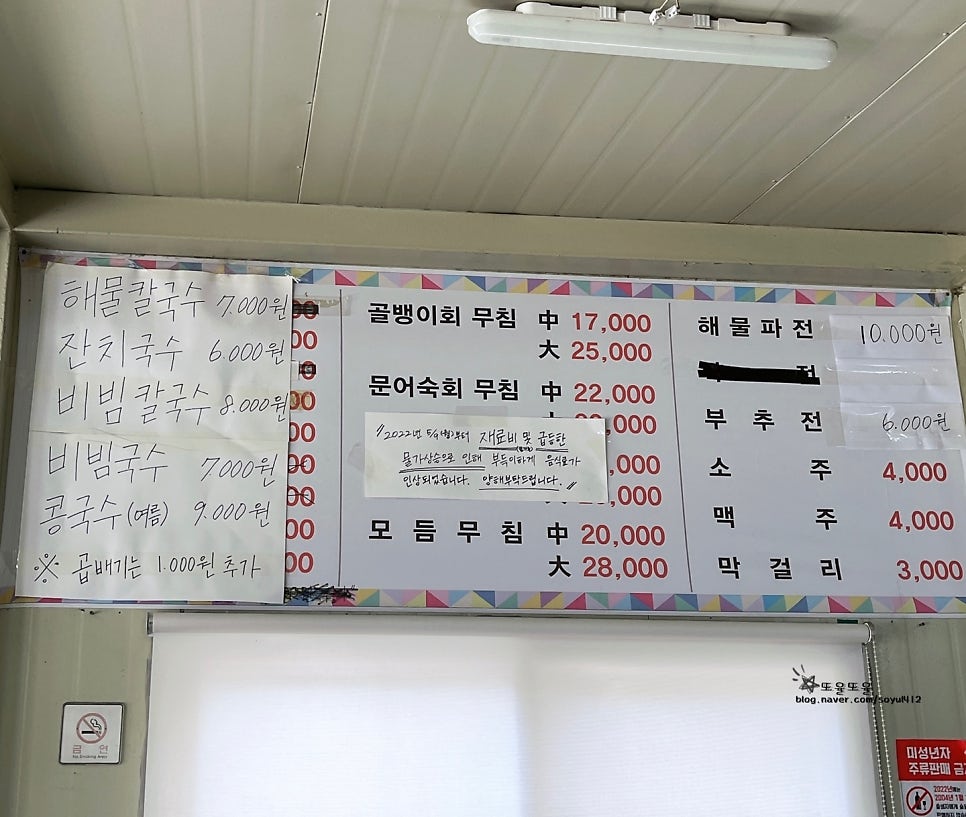 해물칼국수 7.000원
잔치국수 6.000원
비빔칼국수 8.000원
비빔국수 7000원
콩국수(여름) 9.000원
※ 곱배기는 1.000원 추가
00
00
00
00
00
00
00
골뱅이회 무침 中 17,000
大 25,000
문어숙회 무침 中 22,000
"2022년 5/9(월)부터 재료비 및 급등한
물가상승으로 인해 부득이하게 음식료가
인상되었습니다. 양해부탁드립니다."
,000
,000
모 듬 무 침 中 20,000
大 28,000
해 물 파 전 10.000원
전
부 추 전 6.000원
소 주 4,000
맥 주 4,000
막 걸 리 3,000
또율또율
blog.naver.com/soyul412
금 연
No Smoking Area
미성년자
주류판매 금
2022년에는
2004년 1월